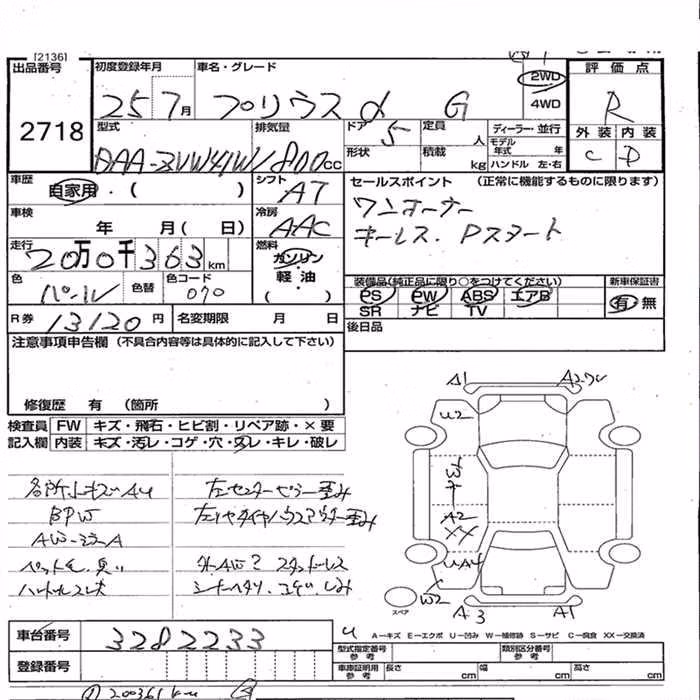 [2136]
出品番号
2718
初度登録年月
25 7月
車名・グレード
プリウスα G
2WD
4WD
評価点
R
外装 内装
C D
型式
DAA-ZVW41W
排気量
1800cc
ドア 5
形状
定員 人
積載 kg
ディーラー・並行
モデル年式 年
ハンドル 左・右
車歴
自家用・( )
シフト
AT
車検
年 月(日)
冷房
AAC
走行
20万0千363km
燃料
ガソリン
軽油
( )
色
パール
色替
色コード
070
R券 13120円
名変期限 月 日
セールスポイント (正常に機能するものに限ります)
ワンオーナー
キーレス. Pスタート
装備品(純正品に限り○をつけてください)
PS PW ABS エアB
SR ナビ TV
新車保証書
有 無
後日品
注意事項申告欄(不具合内容等は具体的に記入して下さい)
修復歴 有 (箇所 )
検査員記入欄
FW キズ・飛石・ヒビ割・リペア跡・×要
内装 キズ・汚レ・コゲ・穴・スレ・キレ・破レ
各所小キズAU
BPW
ペット毛.臭い
ハンドルスレ
左センターピラー歪み
左リヤタイヤハウスアウター歪み
外AW? スタッドレス
シートヘタリ. コゲ. しみ
A1
U2
A2
XX
UA4
W2
A3
A1
スペア
A−キズ E−エクボ U−凹み W−補修跡 S−サビ C−腐食 XX−交換済
車台番号
3282233
登録番号
型式指定番号 参考
類別区分番号 参考
車庫証明用 参考
長さ cm
幅 cm
高さ cm
① 200361km